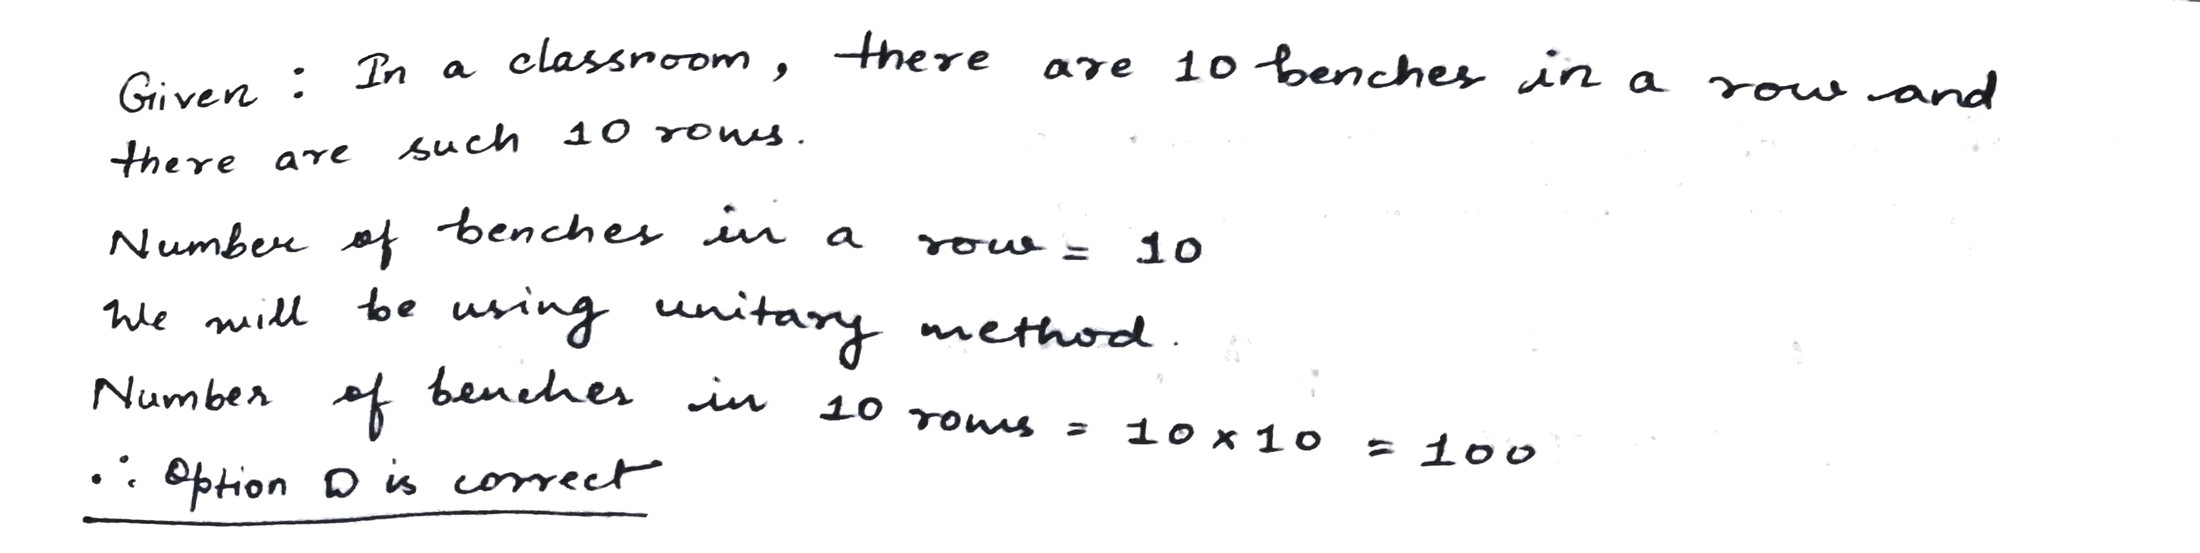 Given : In a classroom, there are 10 benches in a row and
there are such 10 rows.
Number of benches in a row = 10
We will be using unitary method.
Number of benches in 10 rows = 10 x 10 = 100
∴ Option D is correct